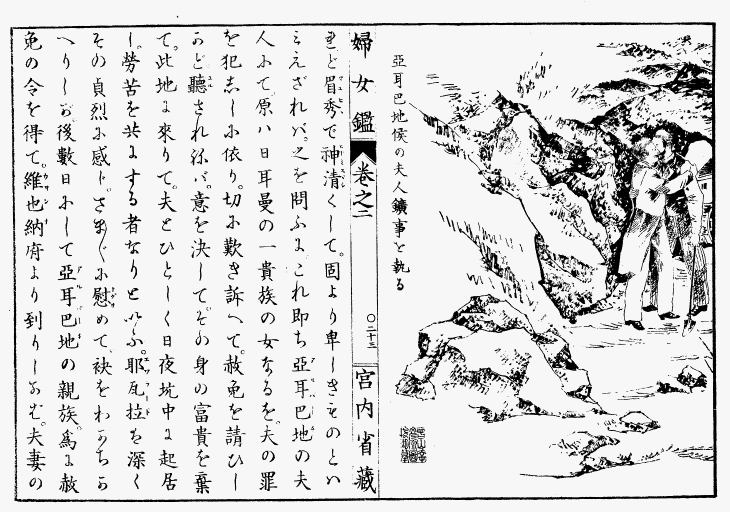 亞耳巴地侯の夫人鑛事を執る
婦女鑑 卷之二 〇二十三 宮内省藏
れど眉秀で神清くして。固より卑しきものとい
みえざれバ。之を問ふに。これ即ち亞耳巴地の夫
人にて。原ハ日耳曼の一貴族の女なるを。夫の罪
を犯しゝに依り。切に歎き訴へて。赦免を請ひし
かど聽されねバ。意を決してその身の富貴を棄
て。此地に來りて。夫とひとしく日夜坑中に起居
し。勞苦を共にする者なりといふ。耶瓦拉も深く
その貞烈に感じ。さま〴〵に慰めて。袂をわかちか
へりしが。後數日にして亞耳巴地の親族。爲に赦
免の令を得て。維也納府より到りしかむ。夫妻の